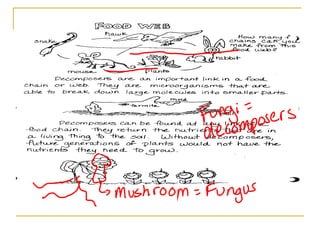 FOOD WEB
hawk
snake
How many food
chains can you
make from this
food web?
rabbit
mouse
plants
Decomposers are an important link in a food
chain or web. They are microorganisms that are
able to break down large molecules into smaller parts.
Fungi =
decomposers
Decomposers can be found at any
food chain. They return the nutrients in
a living thing to the soil. Without decomposers,
future generations of plants would not have the
nutrients they need to grow.
Mushroom = Fungus